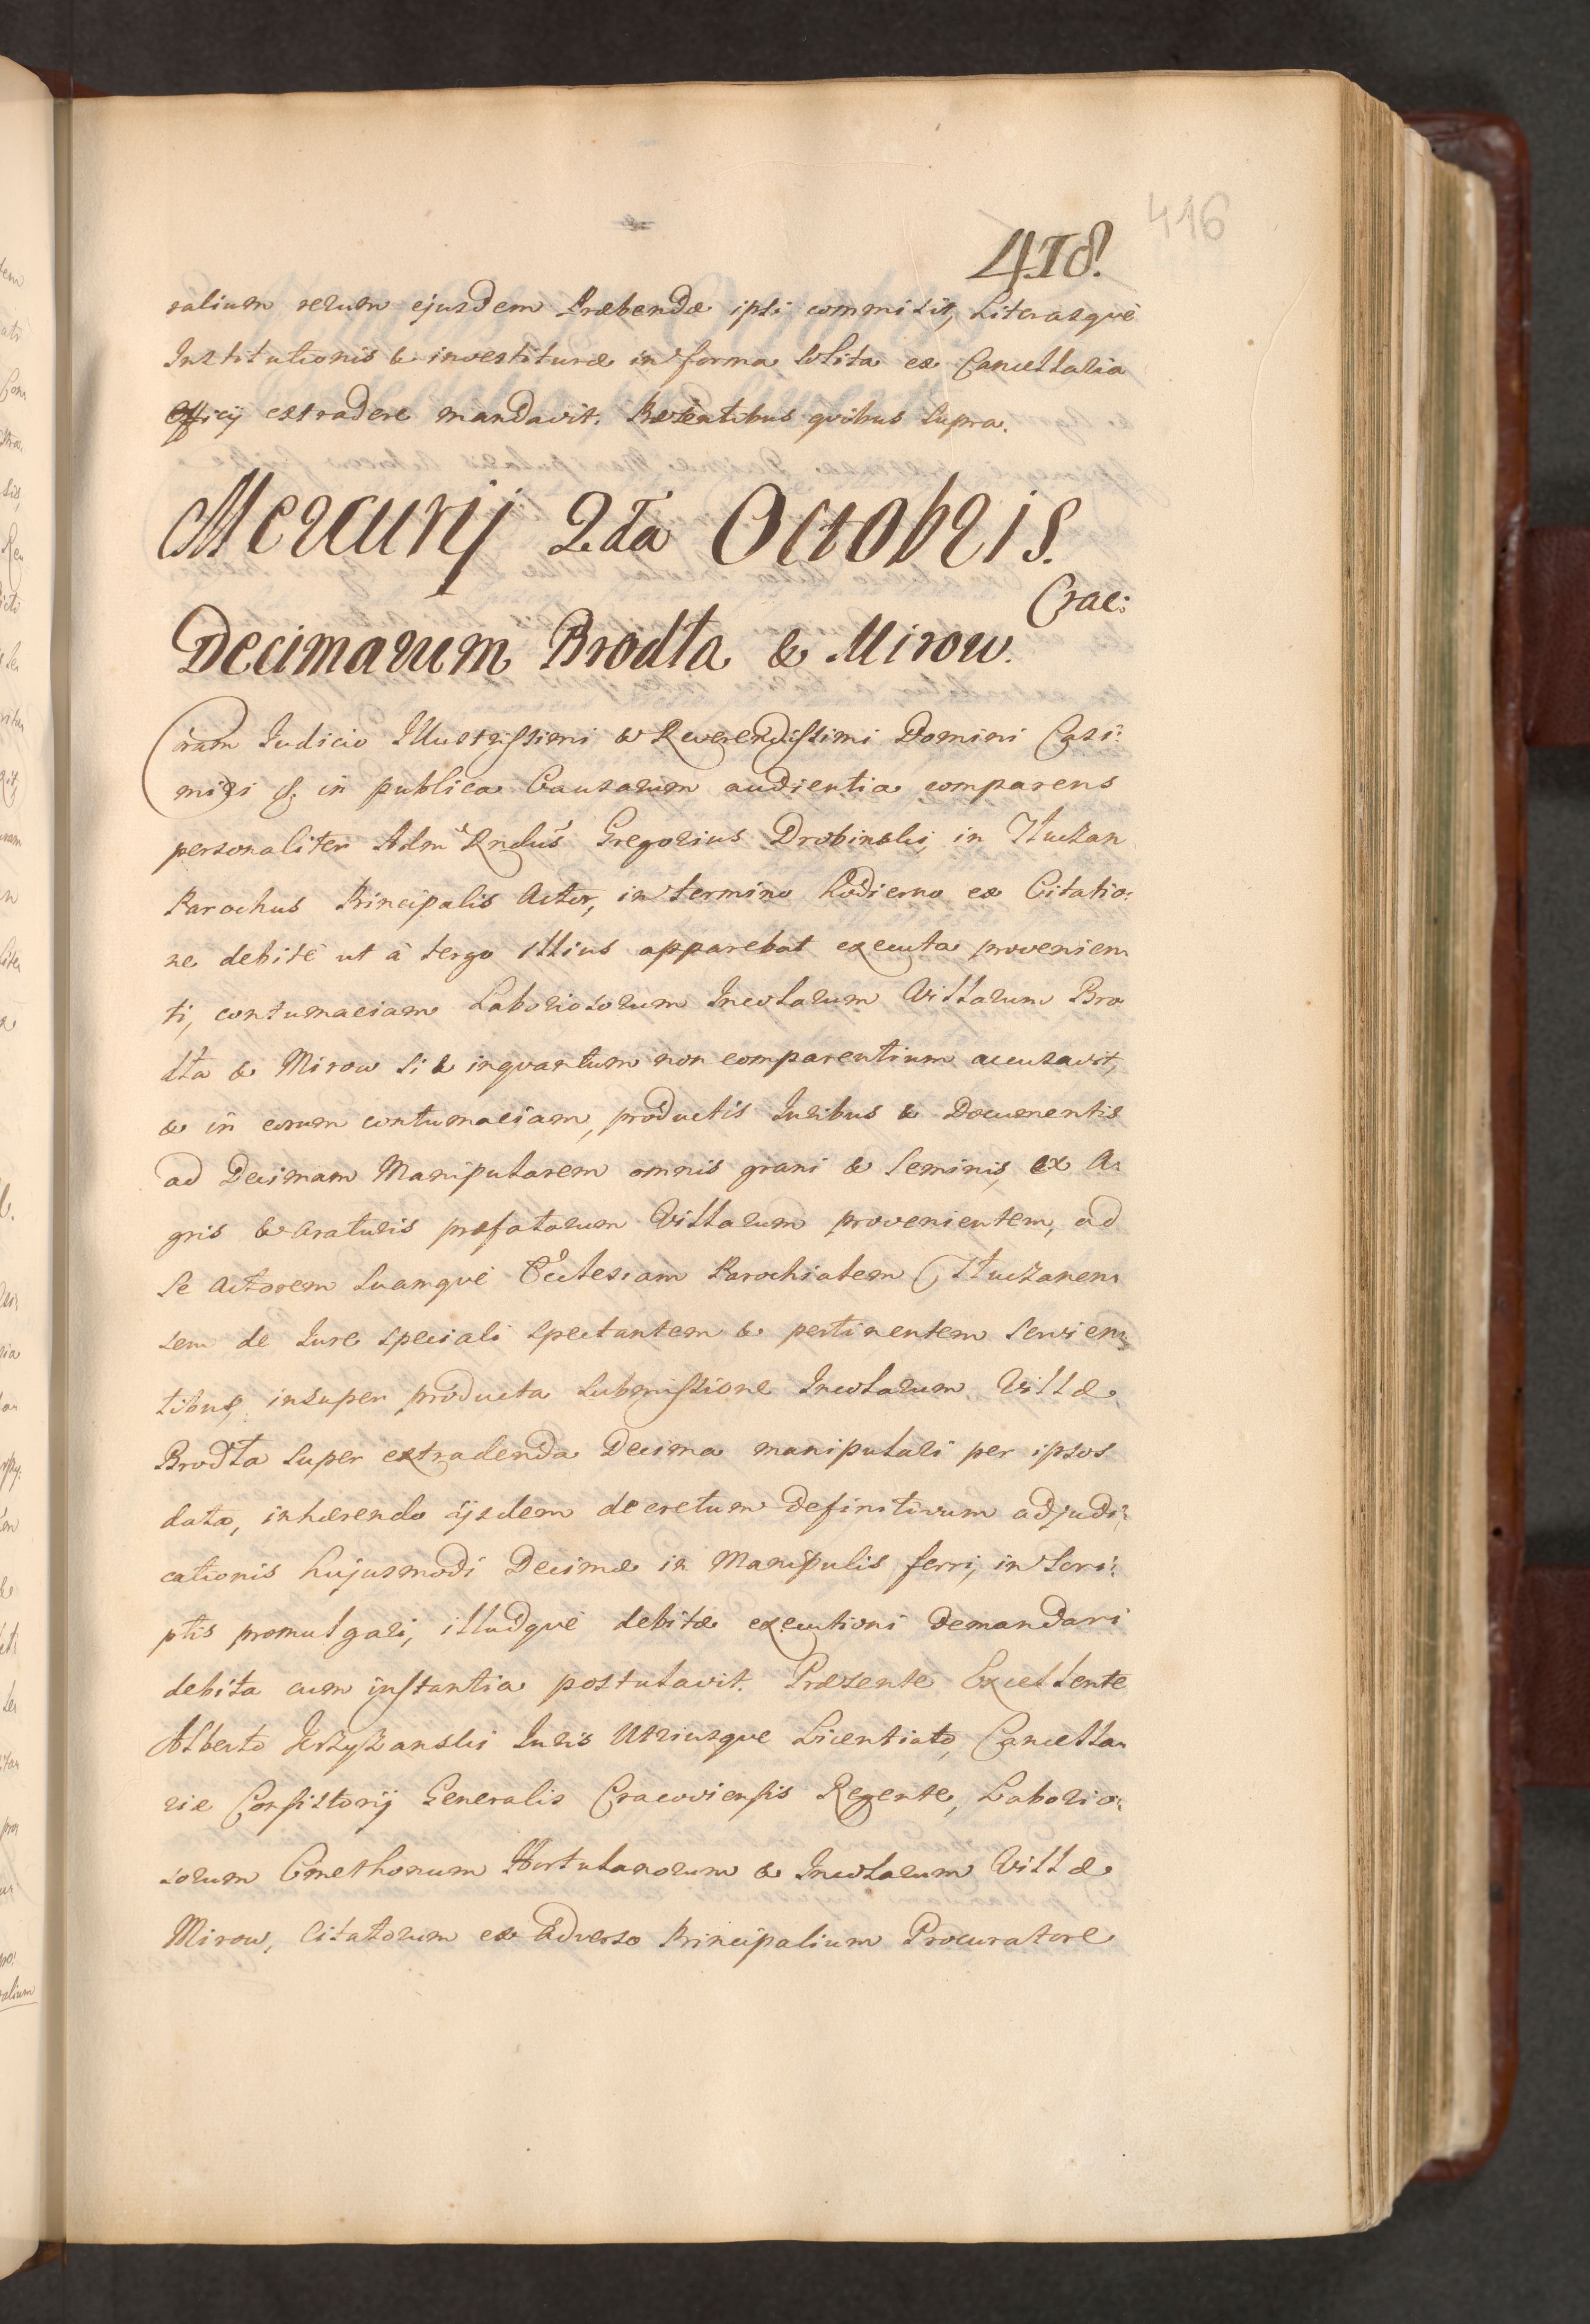 416
418.
ralium rerum ejusdem Præbendæ ipsi commisit, Literasquè
Institutionis & investituræ in forma solita ex Cancellaria
Officij extradere mandavit. Præsentibus quibus supra.
Mercurij 2da Octobris.
Crac:
Decimarum Brodła & Mirow.
Coram Judicio Illustrissimi & Reverendissimi Domini Casi:
miri &. in publica Causarum audientia comparens
personaliter Adm Rndus Gregorius Drobinski, in Tłuczan
Parochus Principalis Actor, in termino hodierno ex Citatio:
ne debitè ut à tergo illius apparebat executa provenien
ti, contumaciam Laboriosorum Incolarum Villarum Bro
dła & Mirow si & inquantum non comparentium accusavit,
& in eorum contumaciam, productis Iuribus & Documentis
ad Decimam Manipularem omnis grani & seminis, ex A:
gris & Araturis præfatarum Villarum provenientem, ad
se Actorem suamquè Ecclesiam Parochialem Tłuczanen
sem de Iure speciali spectantem & pertinentem servien
tibus, insuper producta submissione Incolarum Villæ
Brodła super extradenda Decima manipulari per ipsos
data, inhærendo ijsdem decretum definitivum adjudi:
cationis hujusmodi Decimæ in Manipulis ferri, in scri:
ptis promulgari, illudquè debitæ executioni demandari
debita cum instantia postulavit. Præsente Excellente
Alberto Krzyżanski Iuris Utriusque Licentiato, Cancella
riæ Consistorij Generalis Cracoviensis Regente, Laborio:
sorum Cmethonum Hortulanorum & Incolarum Villæ
Mirow, Citatorum ex Adverso Principalium Procuratore